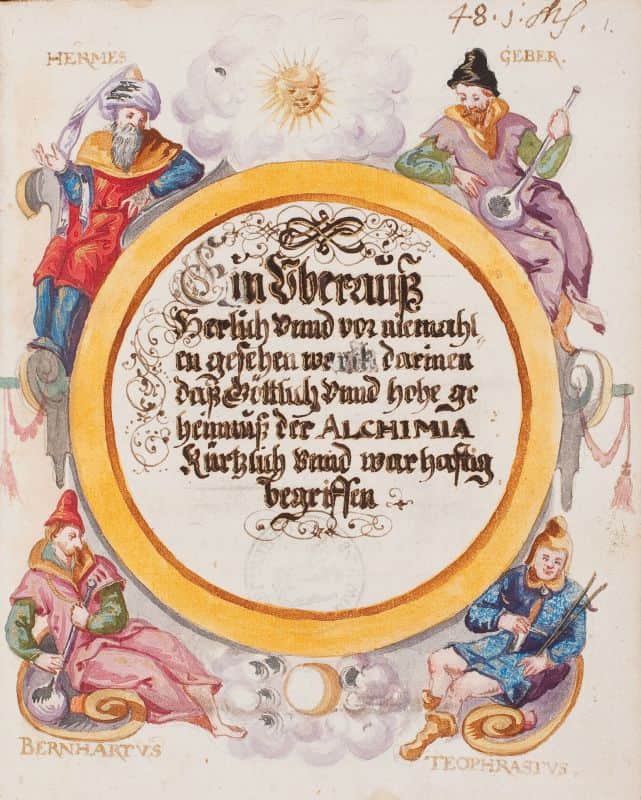 48. j.
1.
HERMES
GEBER.
Ein Vberauß
Herlich vnnd vor niemahl
en gesehen werck darinen
daß Göttlich vnnd hohe ge
heimnuß der ALCHIMIA
Kürtzlich vnnd warhaftig
begriffen
BERNHARTVS
TEOPHRASTVS.